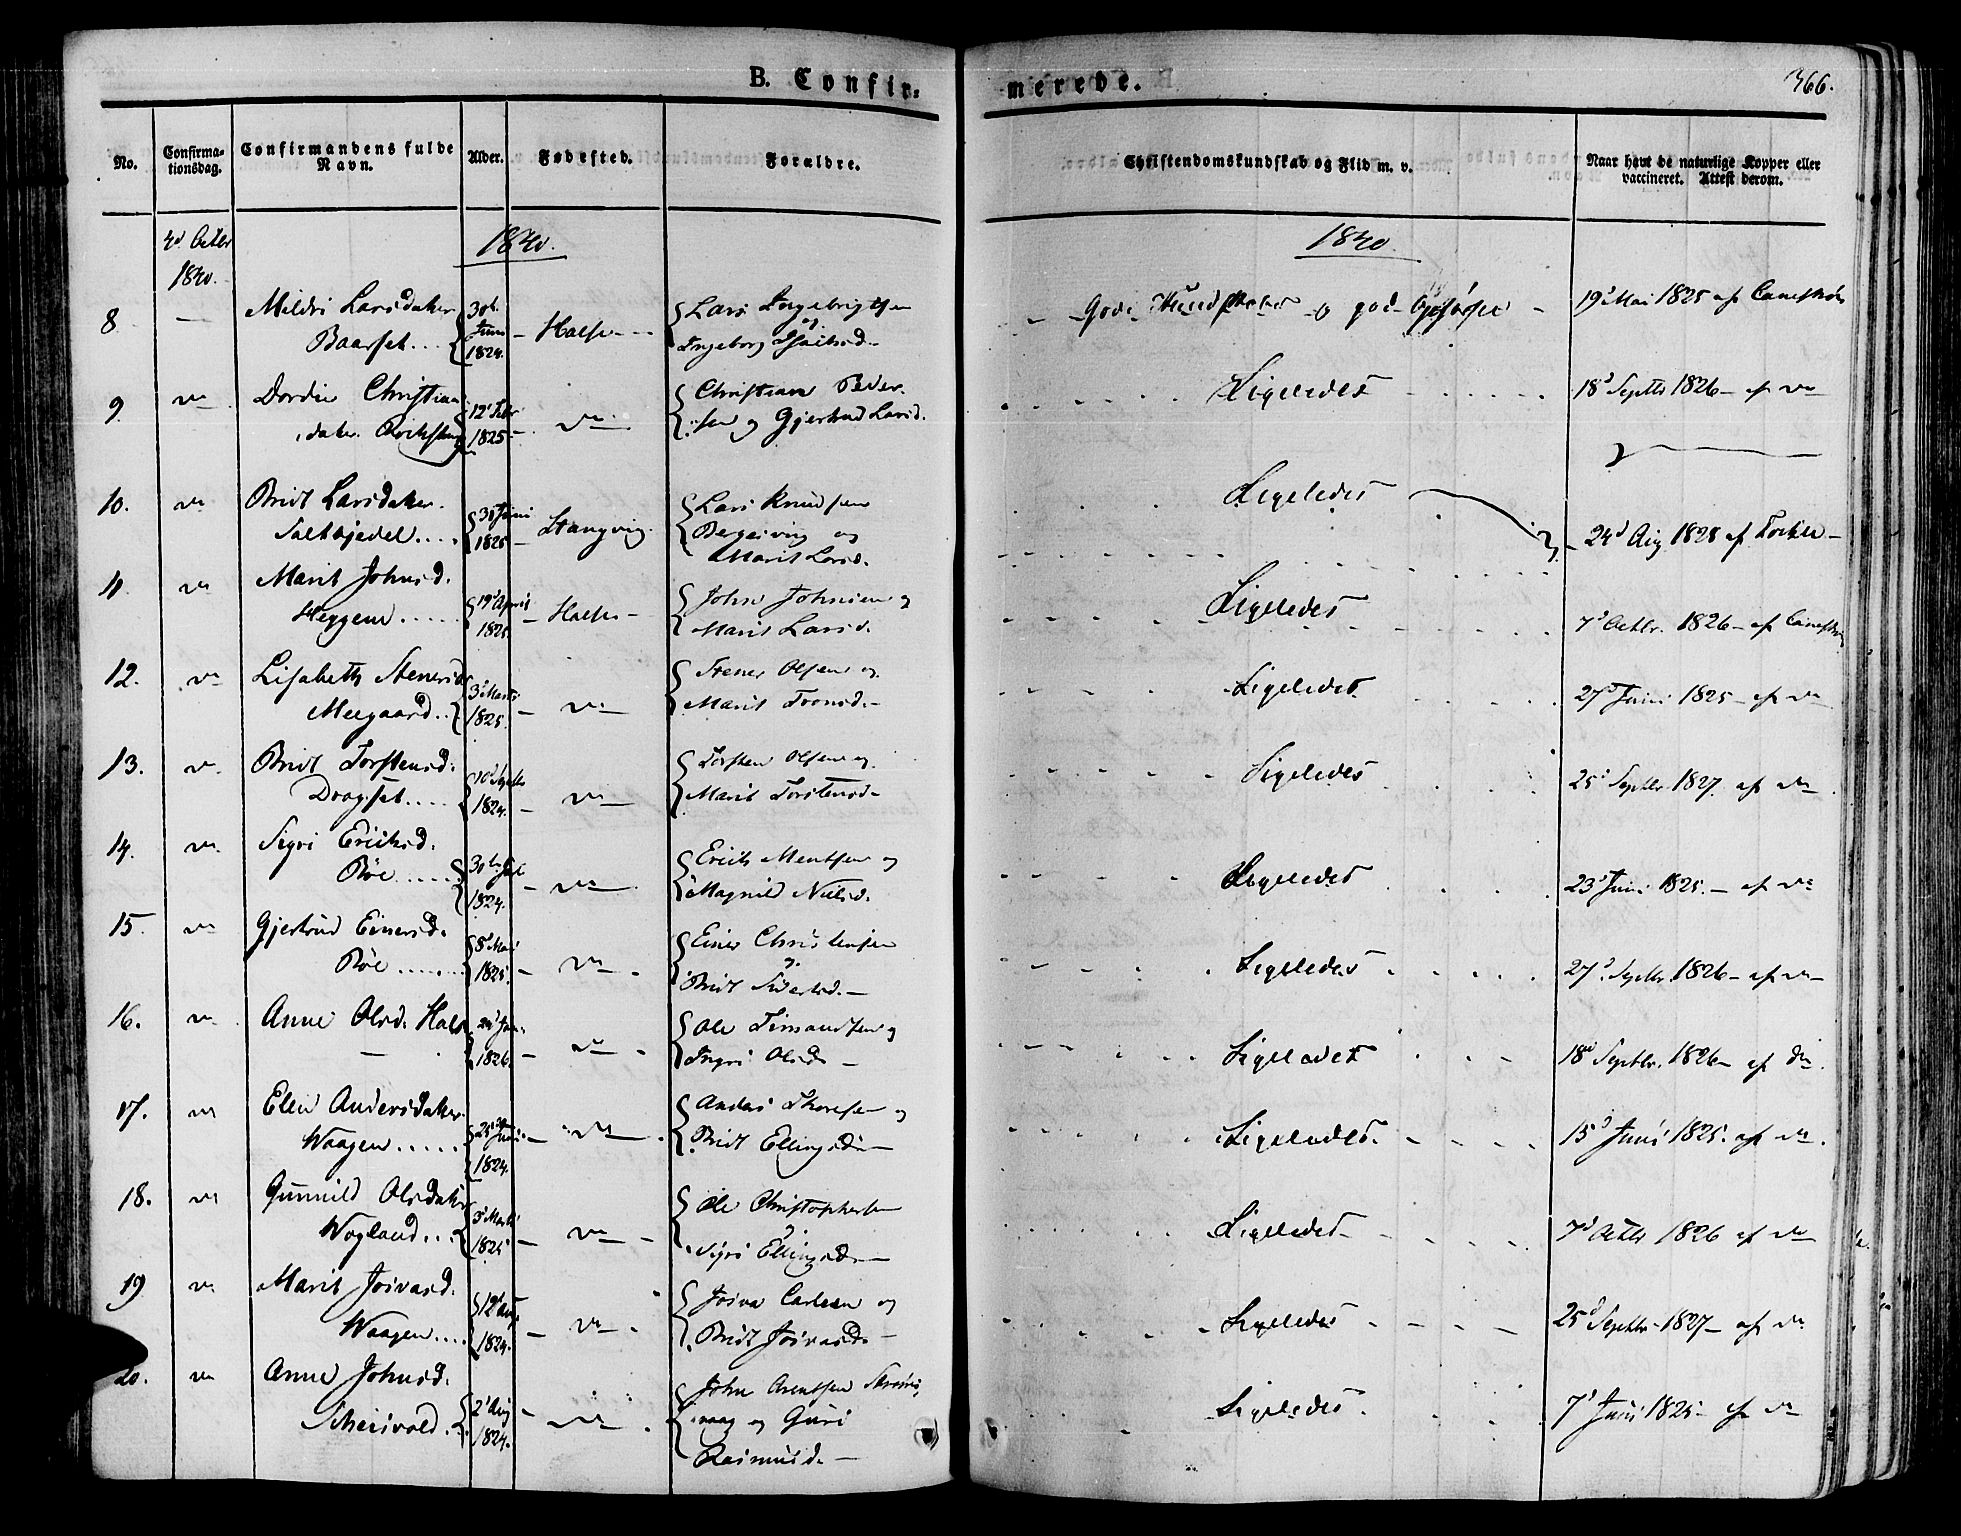 B. Confir-
merede.
366.
No.
Confirma-
tionsdag.
Confirmandens fulde
Navn.
Alder.
Fødested.
Forældre.
Christendomskundskab og Flid m. v.
Naar havt de naturlige Kopper eller
vaccineret. Attest derom.
4d Octbr
1840.
1840.
1840
8 — Mildri Larsdatter
Baarset . . . 30t Juni 1824. — Halse — Lars Ingebrigtsen
og
Ingeborg
God Kundskab og god Opførsel — 19d Mai 1825 af
9. do Dordi Christian
sdater. 12d Febr 1825 — do Christian Peder-
sen og Gjertrud Larsd.
Ligeledes 18d Septbr 1826 — af do
10. do Brit Larsdatter
. . . . 3d Juni 1825 — Stangvig. Lars Knudsen
og
Marit Larsd.
Ligeledes 24d Aug 1828 af
11. do Marit Johnsd.
Heggem . . . . . 19d April 1825. — Halse — John Johnsen og
Marit Larsd.
Ligeledes 7d Octbr. 1826 — af
12. do Lisabeth Stenersdr
Meegaard . . 3d Marts 1825. — do Stener Olsen og
Marit Tronsd. —
Ligeledes 27d Juni 1825 — af do
13. do Brit Torstensd.
Dragset . . . . 10d Septbr 1824. — do Torsten Olsen og
Marit Torstensd —
Ligeledes 25d Septbr. 1827. af do
14. do Sigri Eriksd.
Böe . . . . . 30te Jul 1824. — do Erich Mentsen og
Magnild Nielsd.
Ligeledes 23d Juni 1825. — af do
15. do Gjertrud Einersd.
Böe . . . . . . 8d Mai 1825. — do Einer Christensen
og
Brit Siversd. —
Ligeledes 27d Septbr. 1826 — af do
16. do Anne Olsd. Halse
— 24d Jan. 1826. — do Ole og
Ingri Olsd —
Ligeledes 18d Septbr. 1826 — af do.
17. do Ellen Andersdatter.
Waagen . . . . . 25de Juni 1824. — do Anders Thoresen og
Brit Ellingsd —
Ligeledes. 15d Juni 1825. af do.
18. do Gunnild Olsdatter
Wogland . . . 3d Marts 1825 — do Ole Christophersen
Sigri Ellingsd —
Ligeledes 7d Octbr 1826 af do
19 do Marit Josvasd.
Waagen . . . . 12d Aug 1824. — do Josva Carlsen og
Brit Josvasd —
Ligeledes 25d Septbr 1827 — af do
20. do Anne Johnsd.
. . 2d Aug 1824. — do John Arentsen
og Guri
Rasmusd. —
Ligeledes. 7d Juni 1825 — af do